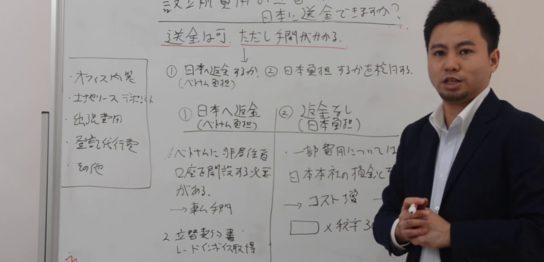 設立前費用の
日本に送金できますか?
送金は可、ただし手間がかかる。
① 日本へ返金するか、② 日本負担 するかを検討する。
(ベトナム負担)
・オフィス内装
・土地リース
・出張費用
・登記代行費
・その他
① 日本へ返金
(ベトナム負担)
② 返金なし
(日本負担)
1. ベトナムに非居住者
口座を開設する必要
がある。
→ 手間
2. 立替契約書
レッドインボイス取得
・一部費用については
日本本社の損金と
→ コスト増